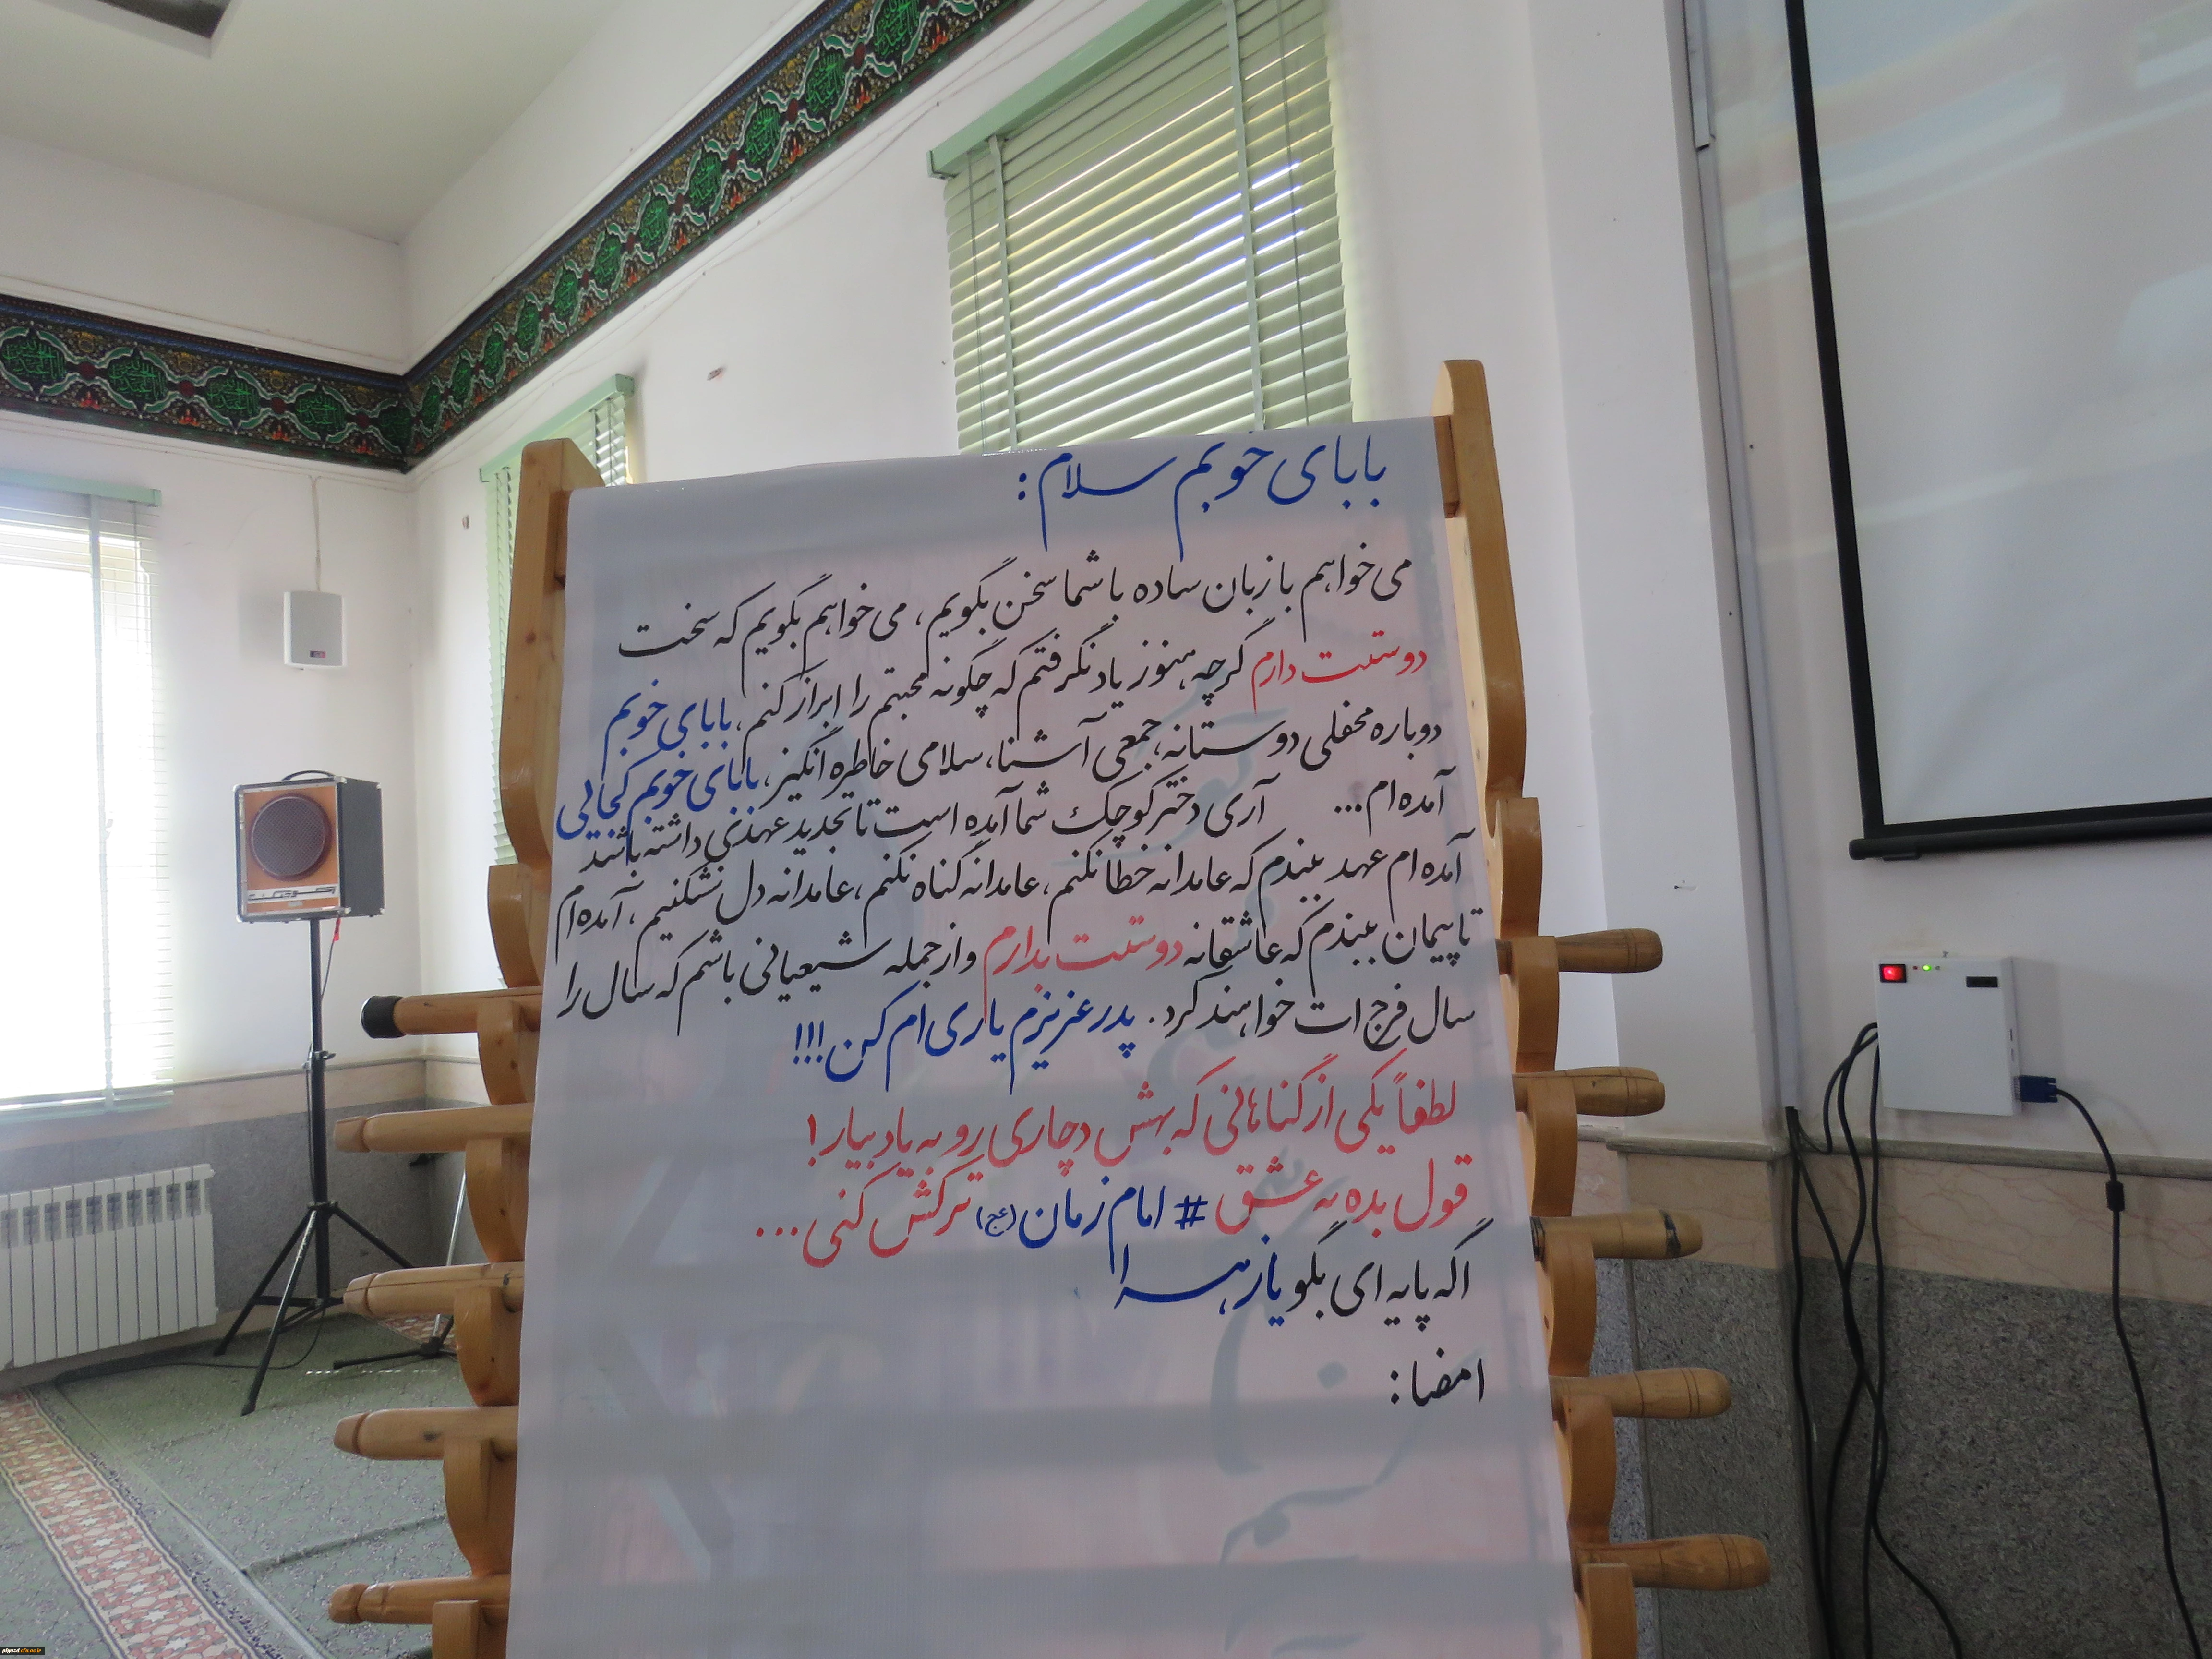 بابای خوبم سلام :
می خواهم با زبان ساده با شما سخن بگویم ، می خواهم بگویم که سخت
دوستت دارم گرچه هنوز یاد نگرفتم که چگونه محبتم را ابراز کنم ، بابای خوبم
دوباره محفلی دوستانه ، جمعی آشنا ، سلامی خاطره انگیز ، بابای خوبم کجائی
آمده ام ... آری دختر کوچک شما آمده است تا تجدید عهدی داشته باشد
آمده ام عهد ببندم که عامدانه خطا نکنم ، عامدانه گناه نکنم ، عامدانه دل نشکنیم ، آمده ام
تا پیمان ببندم که عاشقانه دوستت بدارم و از جمله شیعیانی باشم که سال را
سال فرج ات خواهند کرد . پدر عزیزم یاری ام کن !!!
لطفاً یکی از گناهانی که بهش دچاری رو به یاد بیار !
قول بده به عشق # امام زمان (عج) ترکش کنی ...
اگه پایه ای بگو یا زهرا
امضا :